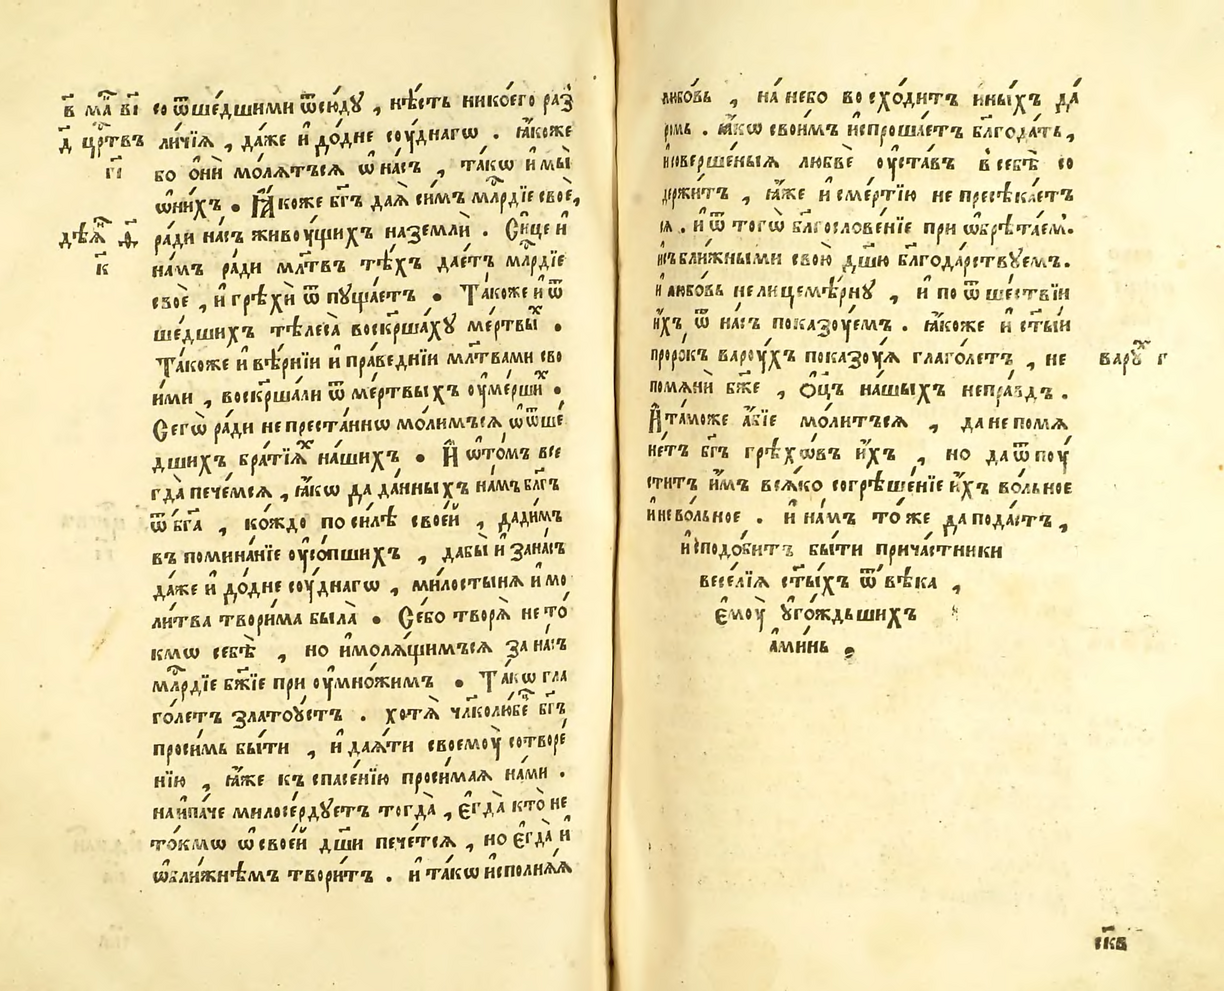 в҃ ма҃ в҃і
д҃ црⷭ҇твъ
г҃і
дѣѧⷩ҇ д҃
к҃
со ѿше́дшими ѿсю́дꙋ , нѣ́сть нико́его раз̾
ли́чїѧ , да́же и҆ до́дне соу́днагѡ . ꙗ҆́коже
бо ѻ҆ни̑ мо́лѧтъсѧ ѡ҆ на́съ , та́кѡ и҆ мы̀
ѡ҆ни́хъ . Ꙗ҆́коже бг҃ъ даѧ̀ си́мъ млⷭ҇рдїе своѐ,
ра́ди на́съ живоу́щихъ наземлѝ . Си́це и҆
на́мъ ра́ди мл҃твъ тѣ́хъ дае́тъ млⷭ҇рдїе
своѐ , и҆ грѣхѝ ѿ пꙋща́етъ . Та́коже и҆ ѿ
ше́дшихъ тѣлеса̀ воскрⷲ҇а́хꙋ ме́ртвыⷯ .
Та́коже и҆ вѣ́рнїи и҆ пра́веднїи мл҃твами сво
и́ми , воскрⷲ҇а́ли ѿ ме́ртвыхъ оу҆ме́ршиⷯ .
Сегѡ̀ ра́ди не преста́ннѡ мо́лимъсѧ ѡ҆ ѿше́
дшихъ бра́тїѧⷯ на́шихъ . И҆ ѡ҆то́мъ все
гда̀ пече́мсѧ , ꙗ҆́кѡ да да́нныхъ на́мъ бл҃гъ
ѿ бг҃а , ко́ждо по си́лѣ свое́й , дади́мъ
въ помина́нїе оу҆со́пшихъ , дабы̀ и҆ зана́съ
да́же и҆ до́дне соу́днагѡ , ми́лостынѧ и҆ мо
ли́тва твори́ма была̀ . Се́бо творѧ̀ не то́
кмѡ себѣ̀ , но и҆мо́лѧщимъсѧ за на́съ
млⷭ҇рдїе бж҃їе при оу҆мно́жимъ . Та́кѡ гла
го́летъ златоу́стъ . хотѧ̀ чл҃колю́бецъ бг҃ъ
проси́мь бы́ти , и҆ даѧ́ти своемоу̀ сотворе́
нїю , ꙗ҆́же къ спасе́нїю проси́маѧ на́ми .
на́ипаче милосе́рдꙋетъ тогда̀ , є҆гда̀ кто̀ не
то́кмѡ ѡ҆ свое́й дш҃и пече́тсѧ , но є҆гда̀ и҆
ѡ҆бли́жнѣмъ твори́тъ . и҆ та́кѡ и҆сполнѧ́ѧ
любо́вь , на́ не́бо во схо́дитъ и҆ны́хъ да́
ромь . ꙗ҆́кѡ свои́мъ и҆спроша́етъ благода́ть,
и҆соверше́ныѧ любвѐ оу҆ста́въ в̾ себѣ̀ со
держи́тъ , ꙗ҆́же и҆ сме́ртїю не пресѣка́етъ
сѧ . и҆ ѿ тогѡ̀ бл҃гослове́нїе при ѡ҆брѣта́ем̾.
и҆събли́жными свою̀ дш҃ю бл҃года́рствꙋемъ.
и҆ любо́вь не лицемѣ́рнꙋ , и҆ по ѿ ше́ствїи
и҆́хъ ѿ на́съ показоу́емъ . ꙗ҆́коже и҆ ст҃ы́й
проро́къ вароу́хъ показоу́ѧ глаго́летъ , не
помѧнѝ бж҃е , Ѻ҆ц҃ъ на́шыхъ непра́вдъ .
И҆ та́може а҆́бїе мо́литъсѧ , да не помѧ
не́тъ бг҃ъ грѣхѡ́въ и҆́хъ , но да ѿпоу́
ститъ и҆́мъ всѧ́ко согрѣше́нїе и҆́хъ во́льное
и҆нево́льное . и҆ на́мъ то́же да пода́стъ ,
и҆ сподо́битъ бы́ти прича́стники
весе́лїѧ ст҃ы́хъ ѿ вѣ́ка ,
є҆моу̀ ᲂугожꙿдьшихъ
а҆ми́нь .
варꙋⷯ г҃
ск҃в